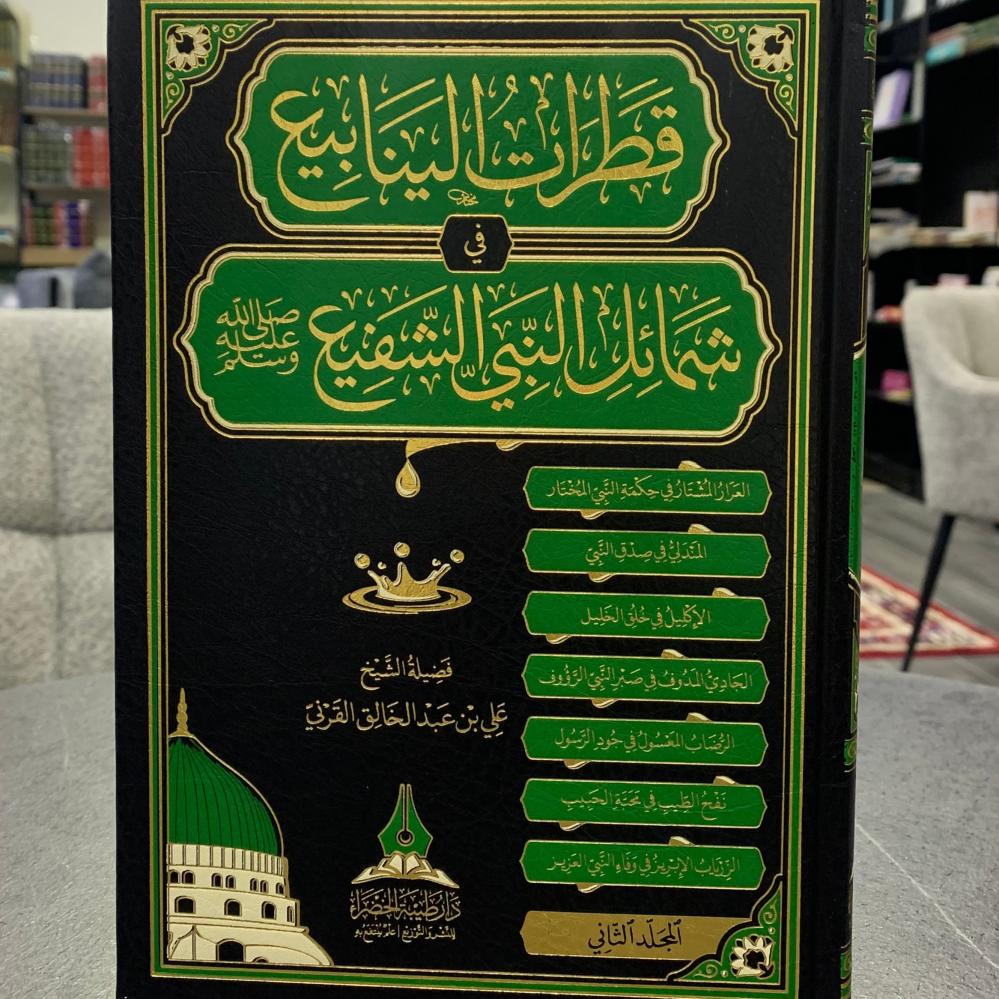 قَطَرَاتُ اليَنَابِيع
في
شَمَائِلِ النَّبِيِّ الشَّفِيعِ
صَلَّى اللهُ عَلَيْهِ وَسَلَّمَ
العَرَارُ المُشْتَارُ فِي حِكْمَةِ النَّبِيِّ المُخْتَار
المَنْدَلِيُّ فِي صِدْقِ النَّبِيّ
الإِكْلِيلُ فِي خُلُقِ الخَلِيل
الجَادِيُّ المَدُوفُ فِي صَبْرِ النَّبِيِّ الرَّؤُوف
الرُّضَابُ المَعْسُولُ فِي جُودِ الرَّسُول
نَفْحُ الطِّيبِ فِي مَحَبَّةِ الحَبِيبِ
الزِّرْيَابُ الإِبْرِيزُ فِي وَفَاءِ النَّبِيِّ العَزِيز
فَضِيلَةُ الشَّيْخ
عَلِي بْن عَبْد الخَالِق القَرْنِيّ
دَارُ طَيْبَةَ الخَضْرَاء
للنشر والتوزيع | علم ينتفع به
المُجَلَّد الثَّانِي